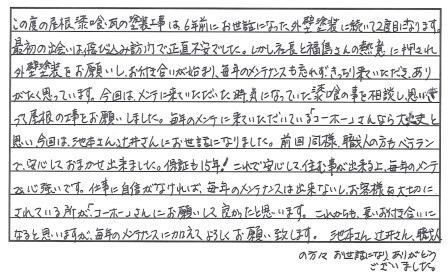 この度の屋根、漆喰、瓦の塗装工事は、6年前にお世話になった外壁塗装に続いて2度目になります。
最初の出会いは飛び込み訪問で正直不安でした。しかし店長と福島さんの熱意に押され
外壁塗装をお願いし、お付き合いが始まり、毎年のメンテナンスも忘れずきっちり来ていただき、あり
がたく思っています。今回は、メンテに来ていただいた時気になっていた漆喰の事を相談し、思い切
って屋根の工事をお願いしました。毎年のメンテに来ていただいている「コーホー」さんなら大丈夫と
思い、今回は、池本さん、辻井さんにお世話になりました。前回同様、職人の方もベテラン
で、安心しておまかせ出来ました。保証も15年!これで安心して住む事が出来る上、毎年のメンテ
も心強いです。仕事に自信がなければ、毎年のメンテナンスは出来ないし、お客様を大切に
されている所が「コーホー」さんにお願いして良かったと思います。これからも、長いお付き合いに
なると思いますが、毎年のメンテナンスに加えてよろしくお願い致します。池本さん、辻井さん、職人
の方々お世話になりありがとう
ございました。